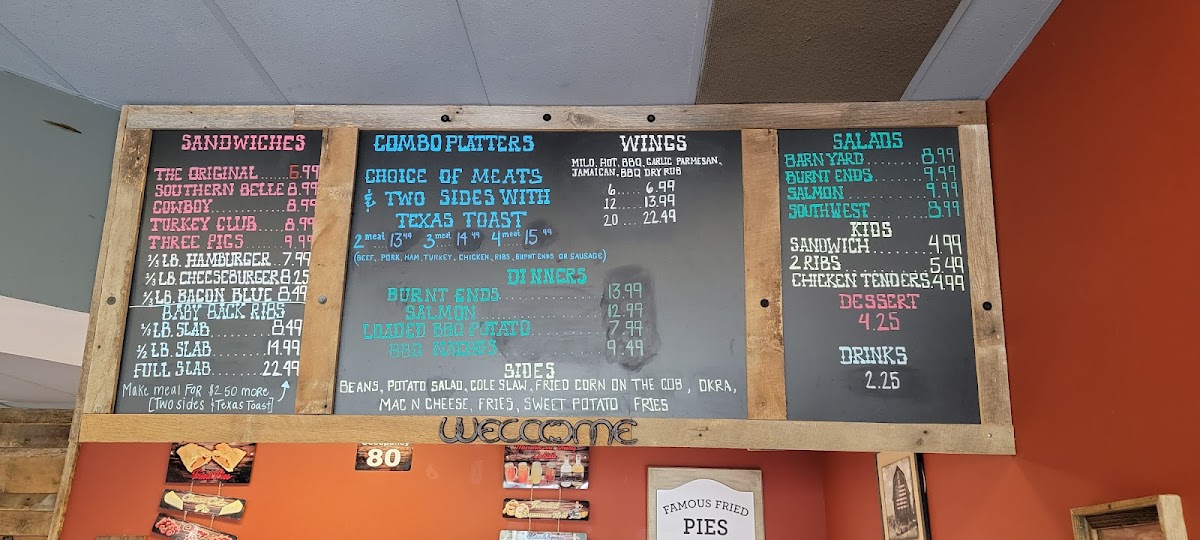 SANDWICHES
THE ORIGINAL......6.99
SOUTHERN BELLE 8.99
COWBOY............8.99
TURKEY CLUB.....8.99
THREE PIGS......9.99
⅓ LB. HAMBURGER..7.99
⅓ LB. CHEESEBURGER 8.25
⅓ LB. BACON BLUE 8.49
BABY BACK RIBS
¼ LB. SLAB.........8.49
½ LB. SLAB.........14.99
FULL SLAB.........22.49
Make meal FOR $2.50 more
[Two sides & Texas Toast]
COMBO PLATTERS
CHOICE OF MEATS
& TWO SIDES WITH
TEXAS TOAST
2 meat....13.49 3 meat....14.49 4 meat....15.49
(BEEF, PORK, HAM, TURKEY, CHICKEN, RIBS, BURNT ENDS OR SAUSAGE)
WINGS
MILD, HOT, BBQ, GARLIC PARMESAN,
JAMAICAN, BBQ DRY RUB
6..... 6.99
12.... 13.99
20.... 22.49
DINNERS
BURNT ENDS.............13.99
SALMON................12.99
LOADED BBQ POTATO........7.99
BBQ NACHOS............9.49
SIDES
BEANS, POTATO SALAD, COLE SLAW, FRIED CORN ON THE COB, OKRA,
MAC N CHEESE, FRIES, SWEET POTATO FRIES
SALADS
BARN YARD........8.99
BURNT ENDS.......9.99
SALMON..........9.99
SOUTHWEST.......8.99
KIDS
SANDWICH.......4.99
2 RIBS...........5.49
CHICKEN TENDERS.4.99
DESSERT
4.25
DRINKS
2.25
WELCOME
Occupancy
80
FAMOUS FRIED
PIES